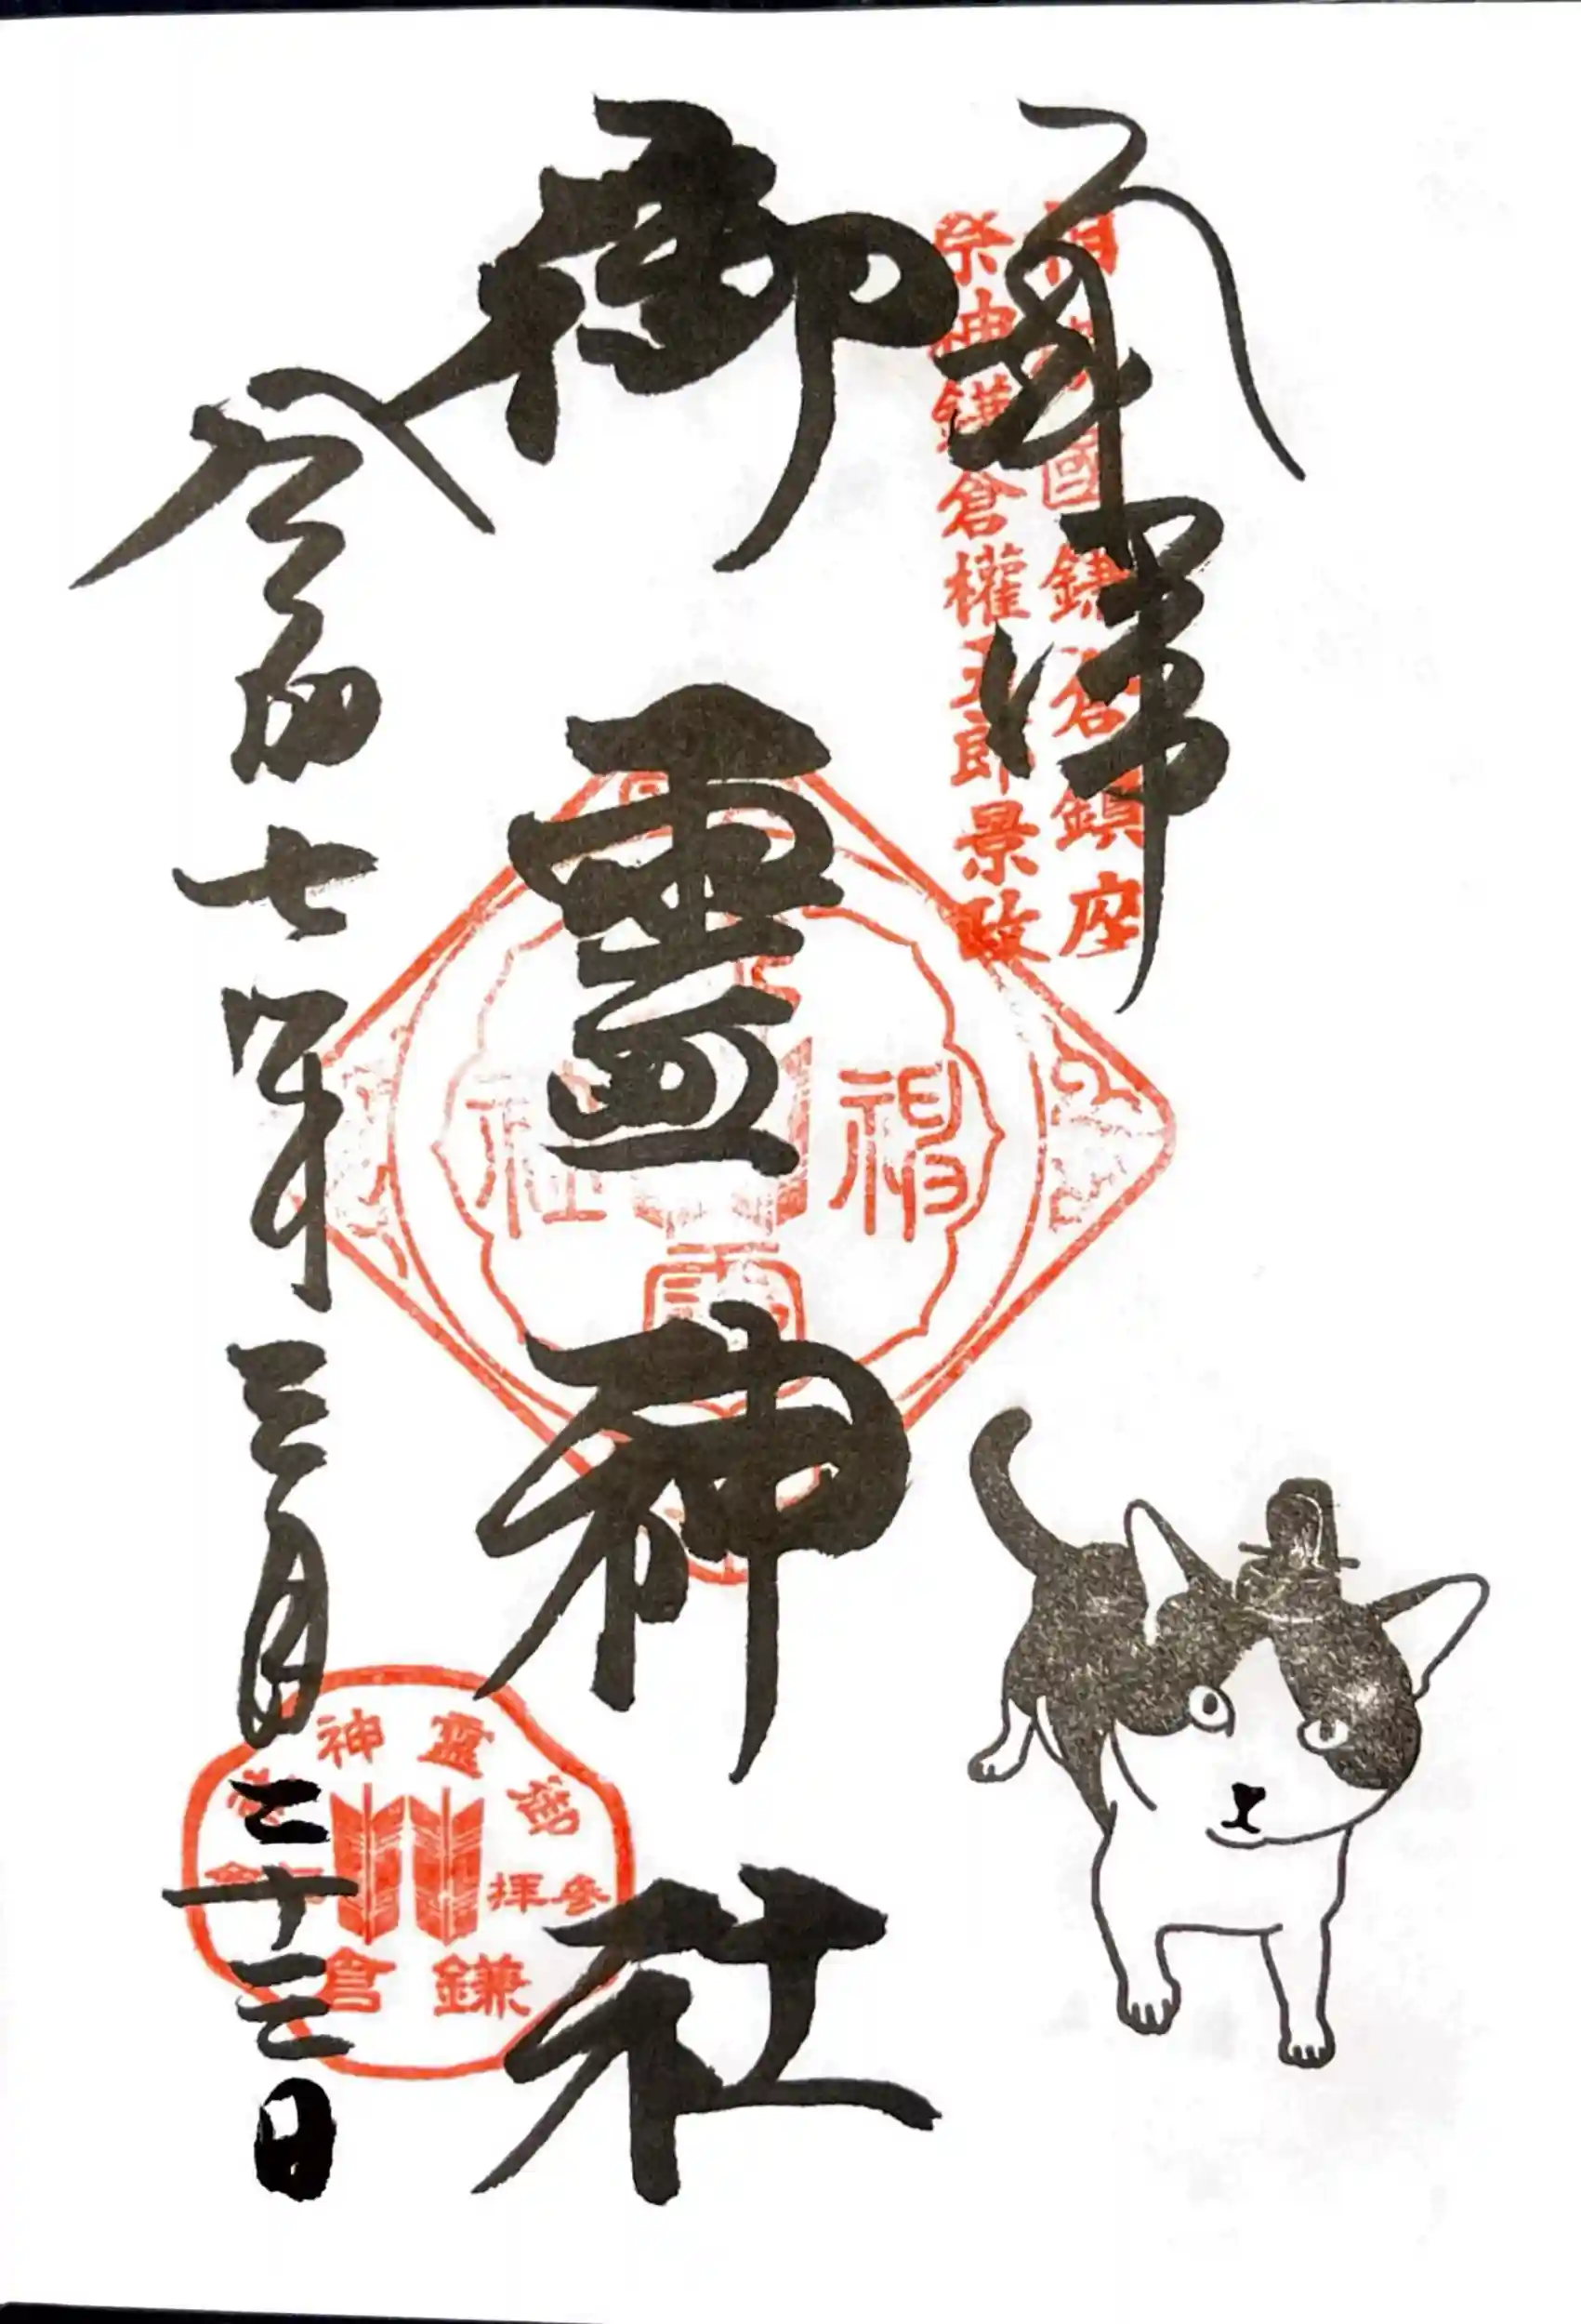 奉拝
相模國鎌倉鎮座
祭神鎌倉權五郎景政
御霊神社
神社
令和七年三月二十三日
御靈神社
参拝
鎌倉